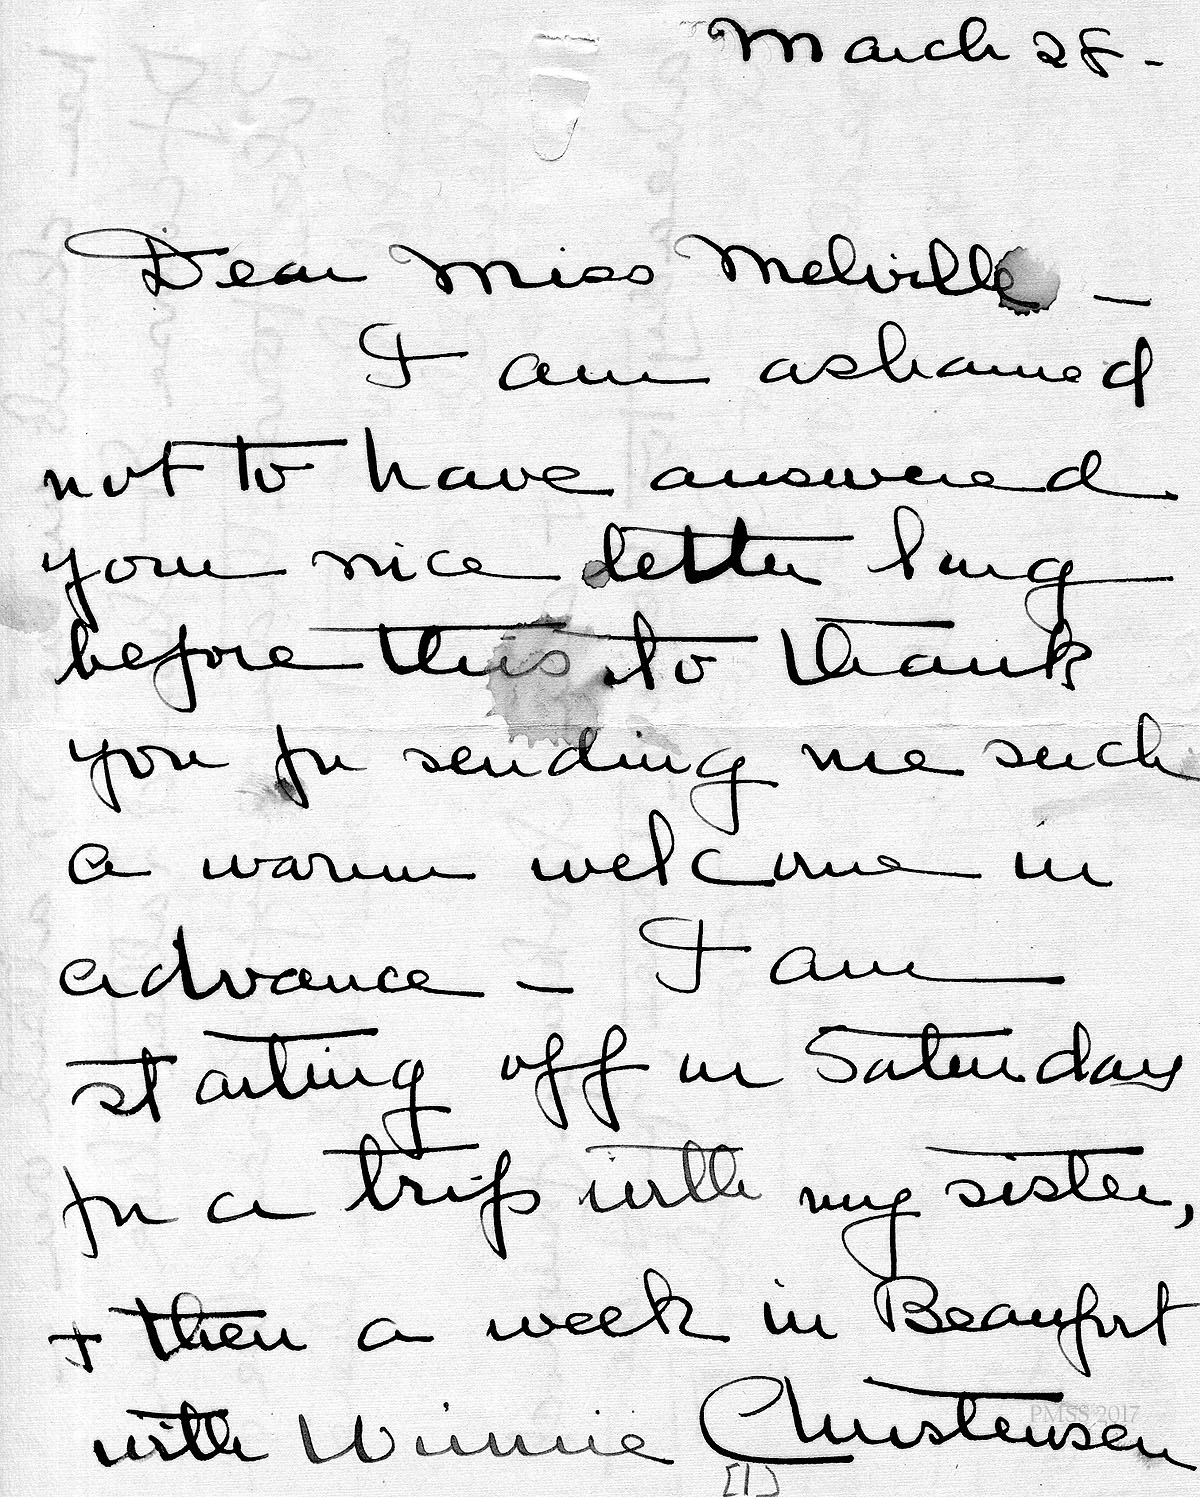 March 28 -
Dear Miss Melville -
I am ashamed
not to have answered
your nice letter long
before this to thank
you for sending me such
a warm welcome in
advance - I am
starting off on Saturday
for a trip with my sister,
+ then a week in Beaufort
with Winnie Christensen
PMSS 2017
[1]